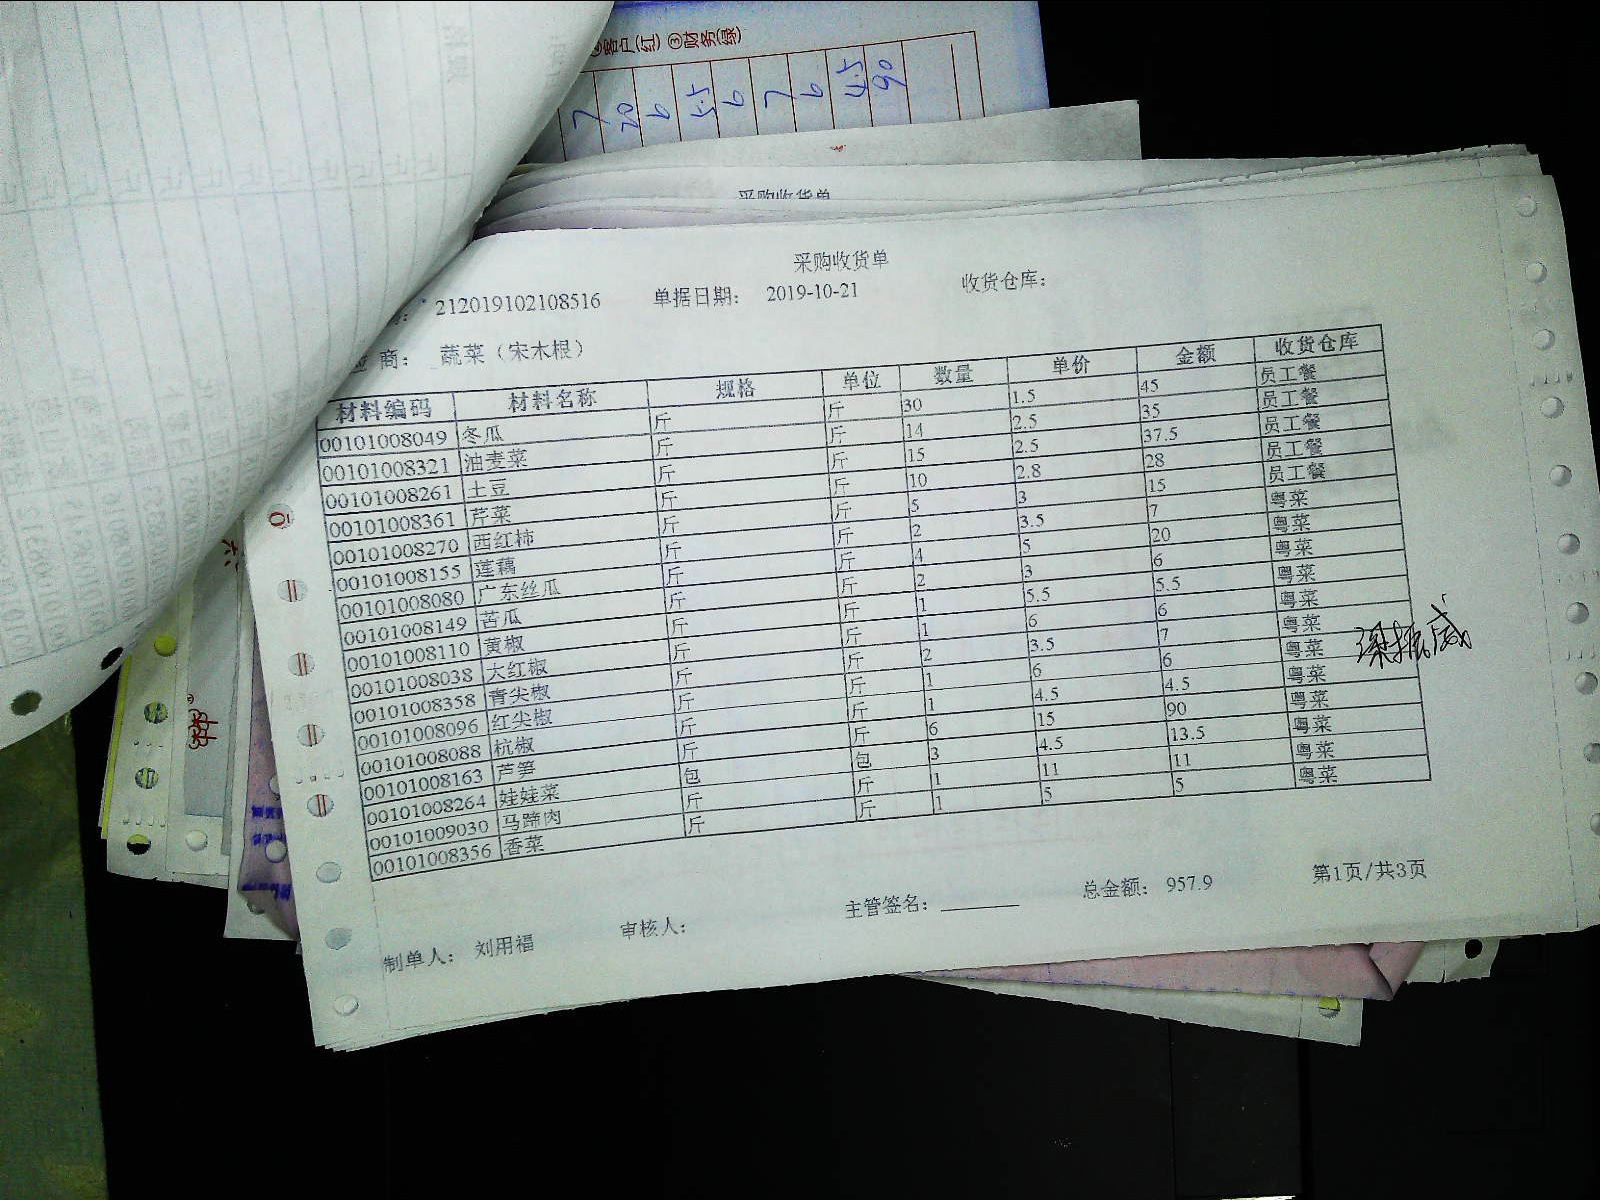 客户(红) ③财务(绿)
采购收货单
采购收货单
212019102108516 单据日期: 2019-10-21 收货仓库:
商: 蔬菜（宋木根）
材料编码 材料名称 规格 单位 数量 单价 金额 收货仓库
00101008049 冬瓜 斤 斤 30 1.5 45 员工餐
00101008321 油麦菜 斤 斤 14 2.5 35 员工餐
00101008261 土豆 斤 斤 15 2.5 37.5 员工餐
00101008361 芹菜 斤 斤 10 2.8 28 员工餐
00101008270 西红柿 斤 斤 5 3 15 员工餐
00101008155 莲藕 斤 斤 2 3.5 7 粤菜
00101008080 广东丝瓜 斤 斤 4 5 20 粤菜
00101008149 苦瓜 斤 斤 2 3 6 粤菜
00101008110 黄椒 斤 斤 1 5.5 5.5 粤菜
00101008038 大红椒 斤 斤 1 6 6 粤菜
00101008358 青尖椒 斤 斤 2 3.5 7 粤菜
00101008096 红尖椒 斤 斤 1 6 6 粤菜
00101008088 杭椒 斤 斤 1 4.5 4.5 粤菜
00101008163 芦笋 斤 斤 6 15 90 粤菜
00101008264 娃娃菜 包 包 3 4.5 13.5 粤菜
00101009030 马蹄肉 斤 斤 1 11 11 粤菜
00101008356 香菜 斤 斤 1 5 5 粤菜
制单人: 刘用福 审核人: 主管签名: 总金额: 957.9 第1页/共3页